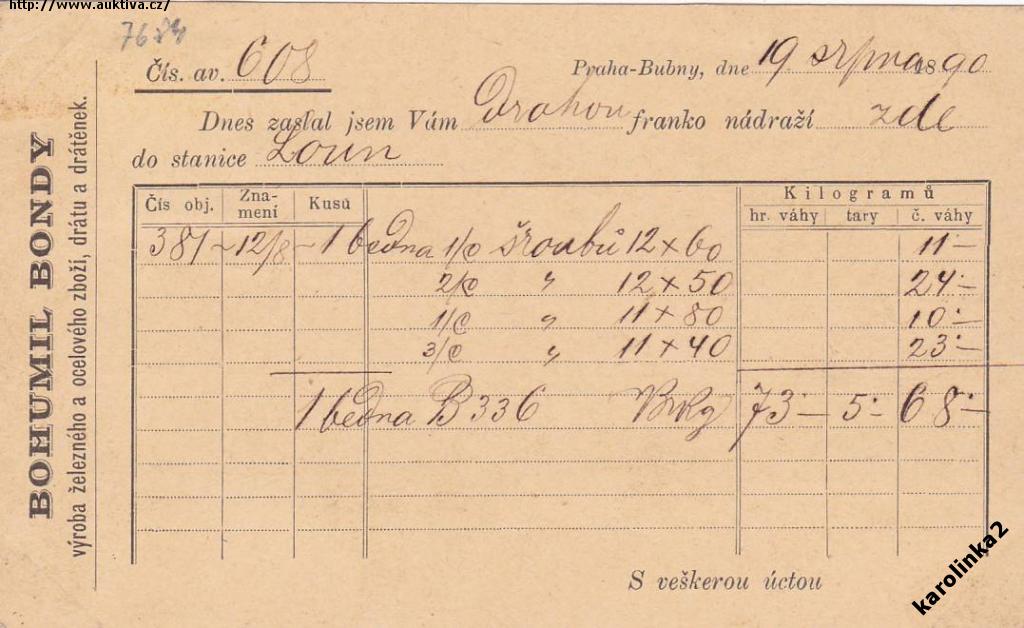 http://www.auktiva.cz/
7684
Čís. av. 608
Praha-Bubny, dne 19 srpna 1890
Dnes zaslal jsem Vám Drahou franko nádraží zde
do stanice Loun
BOHUMIL BONDY
výroba železného a ocelového zboží, drátu a drátěnek.
Čís obj. Zna-mení Kusů Kilogramů
hr. váhy tary č. váhy
381 ~ 12/8 ~ 1 bedna 1/c šroubů 12 x 60 11 -
2/c " 12 x 50 24 -
1/c " 11 x 80 10 -
3/c " 11 x 40 23 -
1 bedna B 336 73 - 5 - 68 -
S veškerou úctou
karolinka2